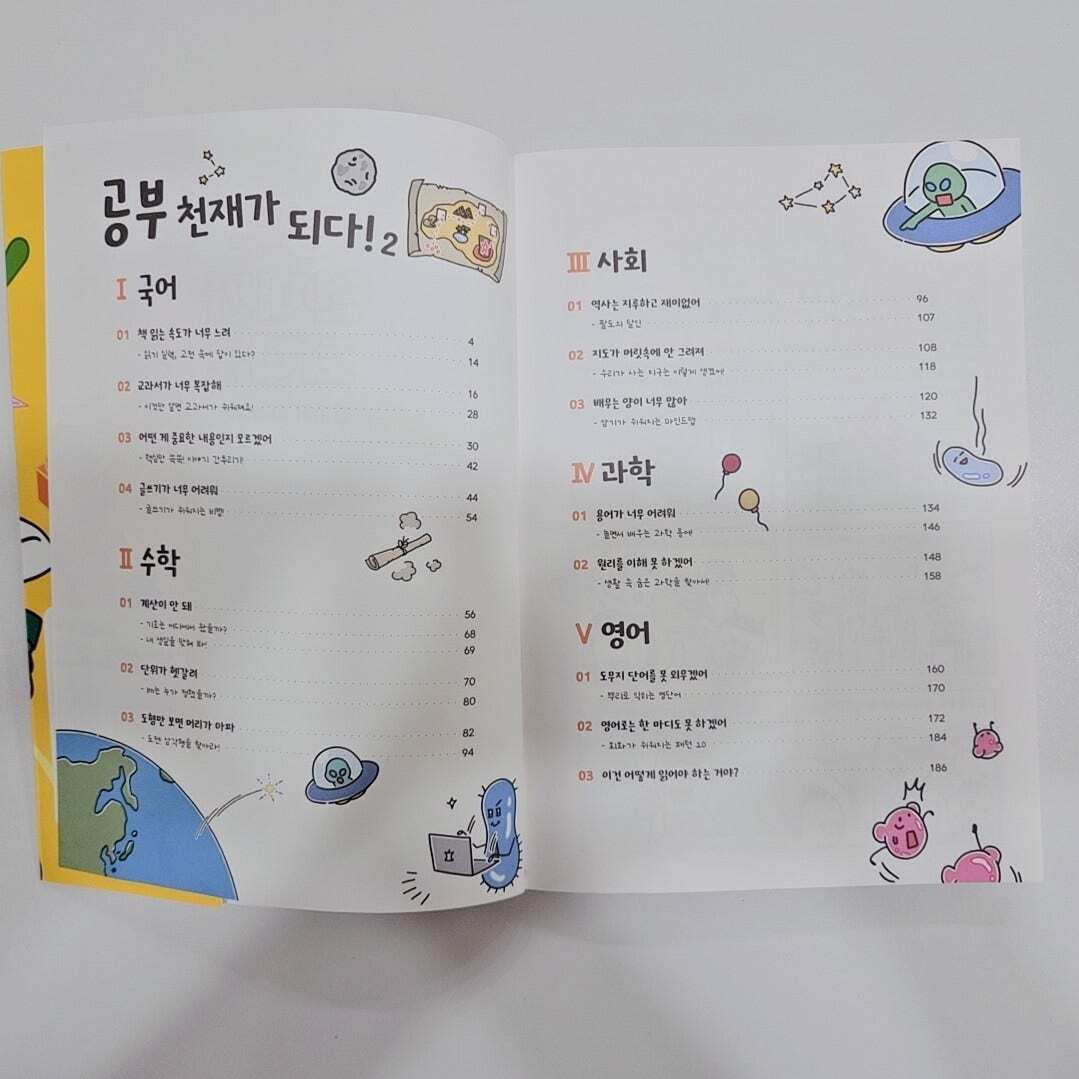 공부 천재가 되다! 2
Ⅰ 국어
01 책 읽는 속도가 너무 느려 4
- 읽기 실력, 고전 속에 답이 있다? 14
02 교과서가 너무 복잡해 16
- 이것만 알면 교과서가 쉬워져요! 28
03 어떤 게 중요한 내용인지 모르겠어 30
- 핵심만 쏙쏙! 이야기 간추리기 42
04 글쓰기가 너무 어려워 44
- 글쓰기가 쉬워지는 비법! 54
Ⅱ 수학
01 계산이 안 돼 56
- 기호는 어디에서 왔을까? 68
- 내 생일을 맞혀 봐! 69
02 단위가 헷갈려 70
- m는 누가 정했을까? 80
03 도형만 보면 머리가 아파 82
- 도전! 삼각형을 찾아라! 94
Ⅲ 사회
01 역사는 지루하고 재미없어 96
- 팔도의 달인 107
02 지도가 머릿속에 안 그려져 108
- 우리가 사는 지구는 이렇게 생겼어! 118
03 배우는 양이 너무 많아 120
- 암기가 쉬워지는 마인드맵 132
Ⅳ 과학
01 용어가 너무 어려워 134
- 놀면서 배우는 과학 용어! 146
02 원리를 이해 못 하겠어 148
- 생활 속 숨은 과학을 찾아서! 158
Ⅴ 영어
01 도무지 단어를 못 외우겠어 160
- 뿌리로 익히는 영단어 170
02 영어로는 한 마디도 못 하겠어 172
- 회화가 쉬워지는 패턴 20 184
03 이건 어떻게 읽어야 하는 거야? 186